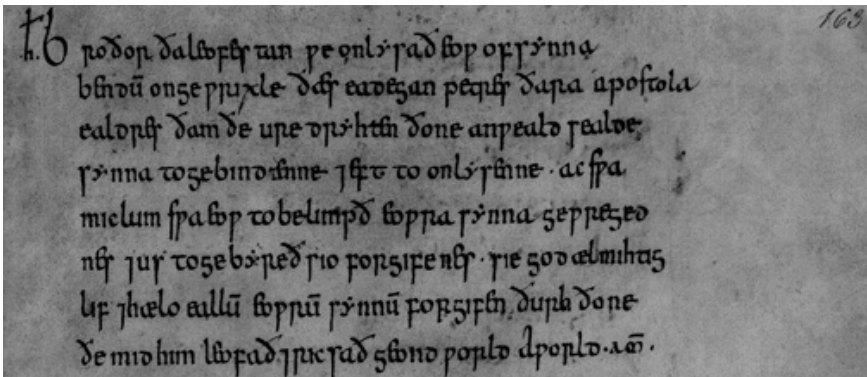 163
Broðor ða leofes tan ƿe onlysað eoƿ of synna
bendū on geƿrixle ðæs eadegan petres ðara apostola
ealdres ðam ðe ure dryhten ðone anƿeald sealde
synna to gebindenne ⁊ eft to onlysenne · ac sƿa
miclum sƿa eoƿ to belimpð eoƿra synna geƿreged
nes ⁊ us to gebyreð sio forgifenes · sie god ælmihtig
lif ⁊ hælo eallū eoƿrū synnū forgifen ðurh ðone
ðe mid him leofað ⁊ ricsað geond ƿorld a ƿorld · am̄ ·